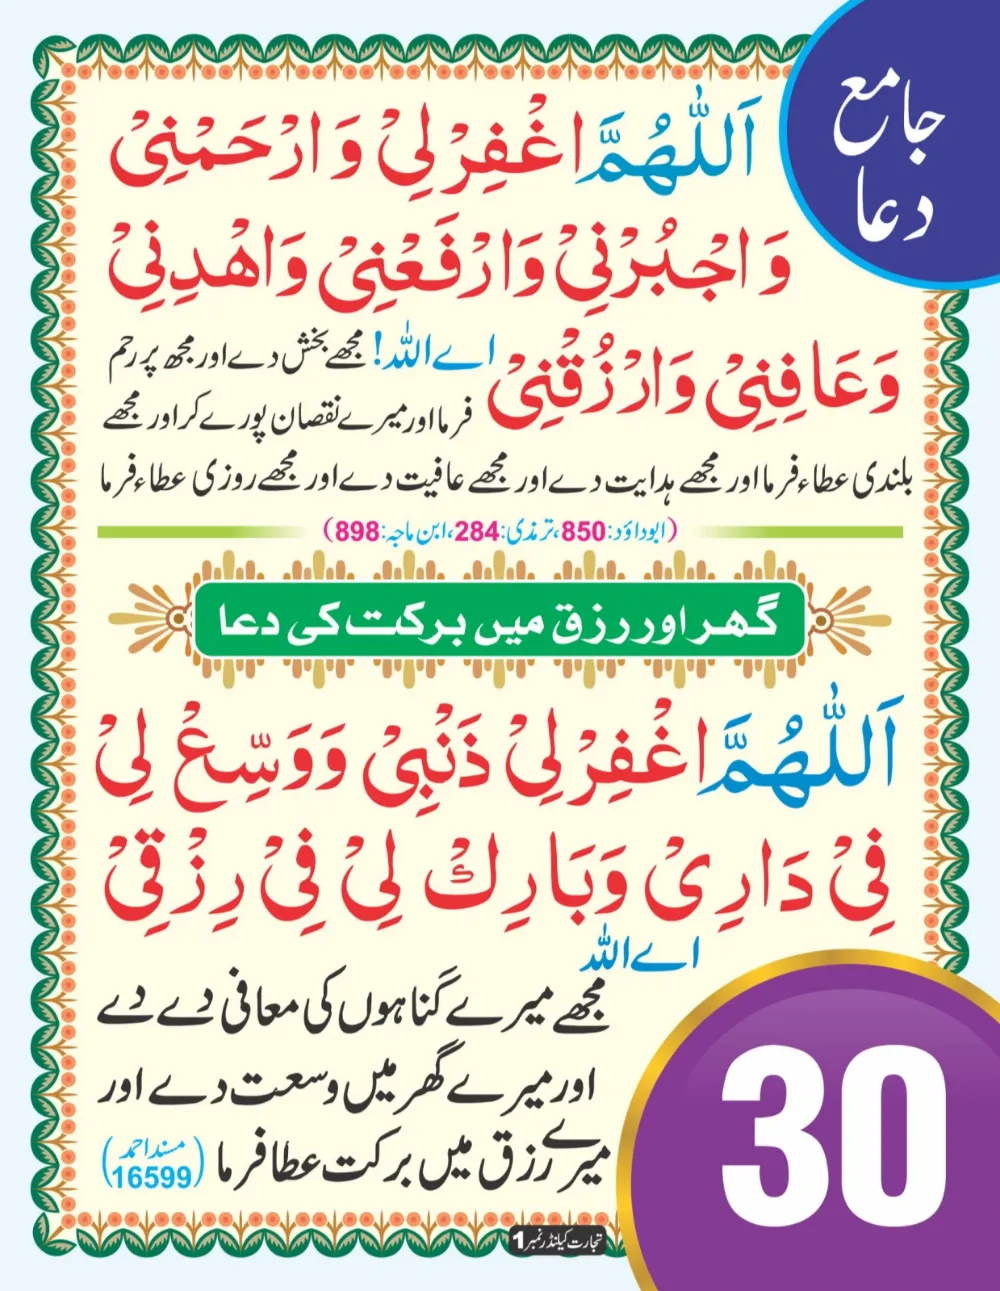 جامع
دعا
اَللّٰهُمَّ اغْفِرْ لِیْ وَ ارْحَمْنِیْ
وَ اجْبُرْنِیْ وَارْفَعْنِیْ وَاهْدِنِیْ
وَعَافِنِیْ وَارْزُقْنِیْ
اے اللہ! مجھے بخش دے اور مجھ پر رحم
فرما اور میرے نقصان پورے کر اور مجھے
بلندی عطاء فرما اور مجھے ہدایت دے اور مجھے عافیت دے اور مجھے روزی عطاء فرما
(ابوداؤد:850،ترمذی:284،ابن ماجہ:898)
گھر اور رزق میں برکت کی دعا
اَللّٰهُمَّ اغْفِرْ لِیْ ذَنْبِیْ وَوَسِّعْ لِیْ
فِیْ دَارِیْ وَبَارِكْ لِیْ فِیْ رِزْقِیْ
اے اللہ
مجھے میرے گناہوں کی معافی دے دے
اور میرے گھر میں وسعت دے اور
میرے رزق میں برکت عطا فرما (مسند احمد 16599)
30
تجارت کیلنڈر نمبر 1